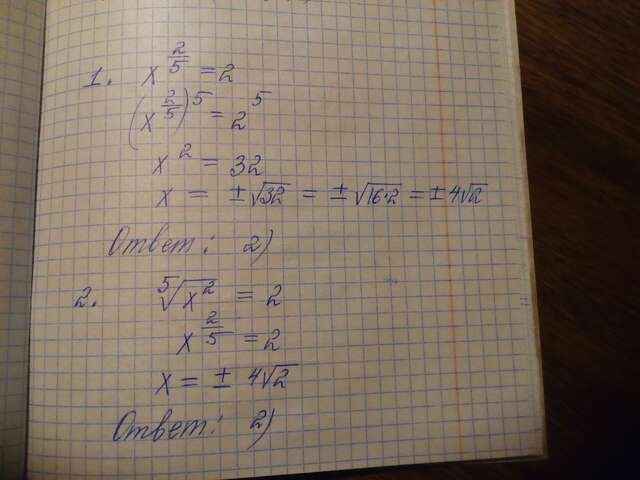 1. x^(2/5) = 2
(x^(2/5))^5 = 2^5
x^2 = 32
x = ±√32 = ±√16·2 = ±4√2
Ответ: 2)
2. ⁵√x^2 = 2
x^(2/5) = 2
x = ± 4√2
Ответ: 2)